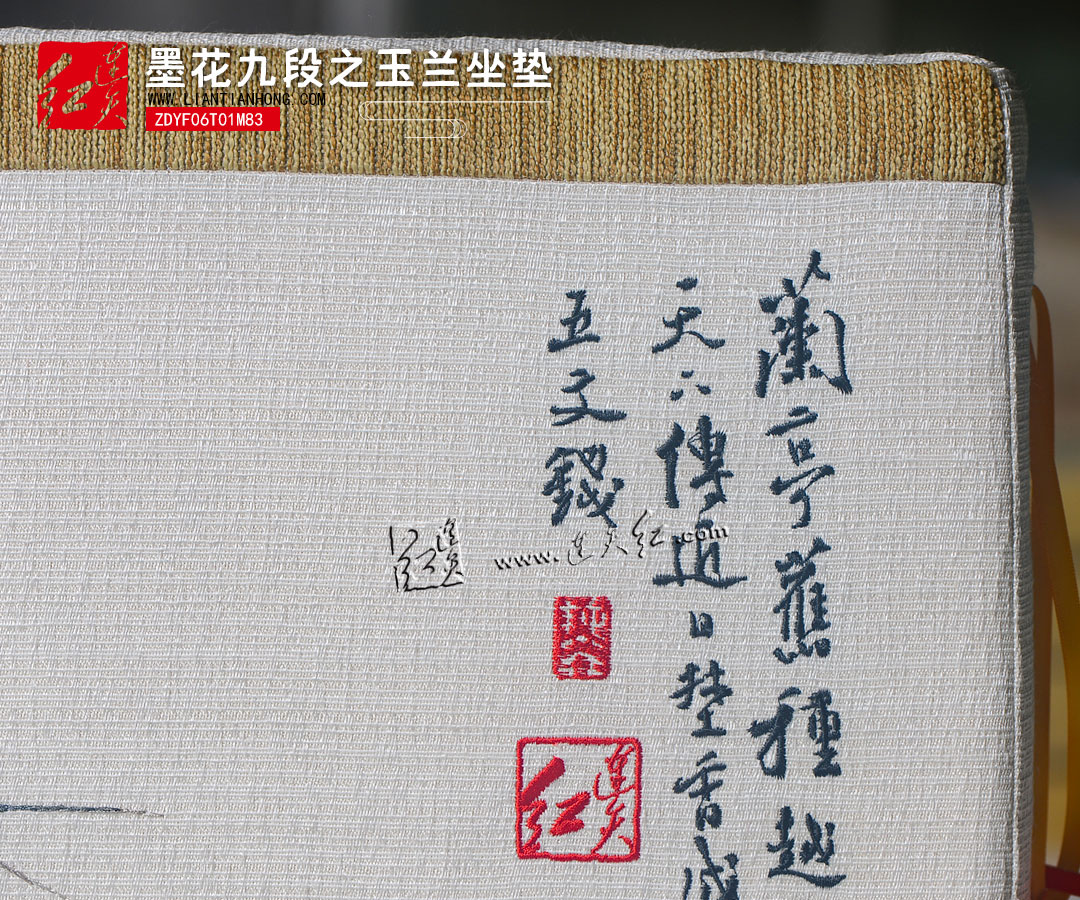 连天红
墨花九段之玉兰坐垫
WWW.LIANTIANHONG.COM
ZDYF06T01M83
蘭亭舊種越
天下傳近日埜香成
五文錢
连天红
www.连天红.com
连天红